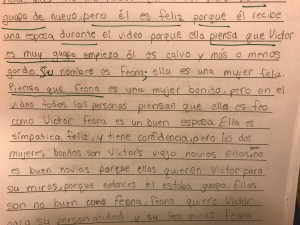 guapo de nuevo, pero él es feliz porque él recibe
una esposa durante el video porque ella piensa que Victor
es muy guapo empieza él es calvo y mas o menos
gordo Su nombre es Feona, ella es una mujer feliz.
Piensa que Feona es una mujer bonita, pero en el
video todas las personas piensan que ella es feo
como Victor Feona es un buen esposa Ella es
simpatica, feliz, y tiene confidencia, pero las dos
mujeres bonitas son Victor's viejo novias Ellas no son
es buen novias porque ellas quieren Victor para
su miras, porque entonces él estaba guapo Ellas
son no buen como feona, Feona quiere Victor
para su personalidad y su feo miras Feona